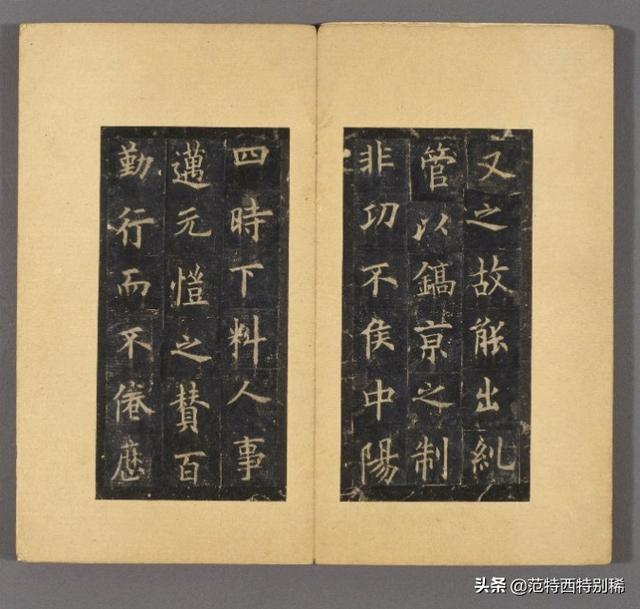 又之故能出糺
管以鎬京之制
非功不侯中陽
四時下料人事
邁元愷之賛百
勤行而不倦歷
头条 @范特西特别稀